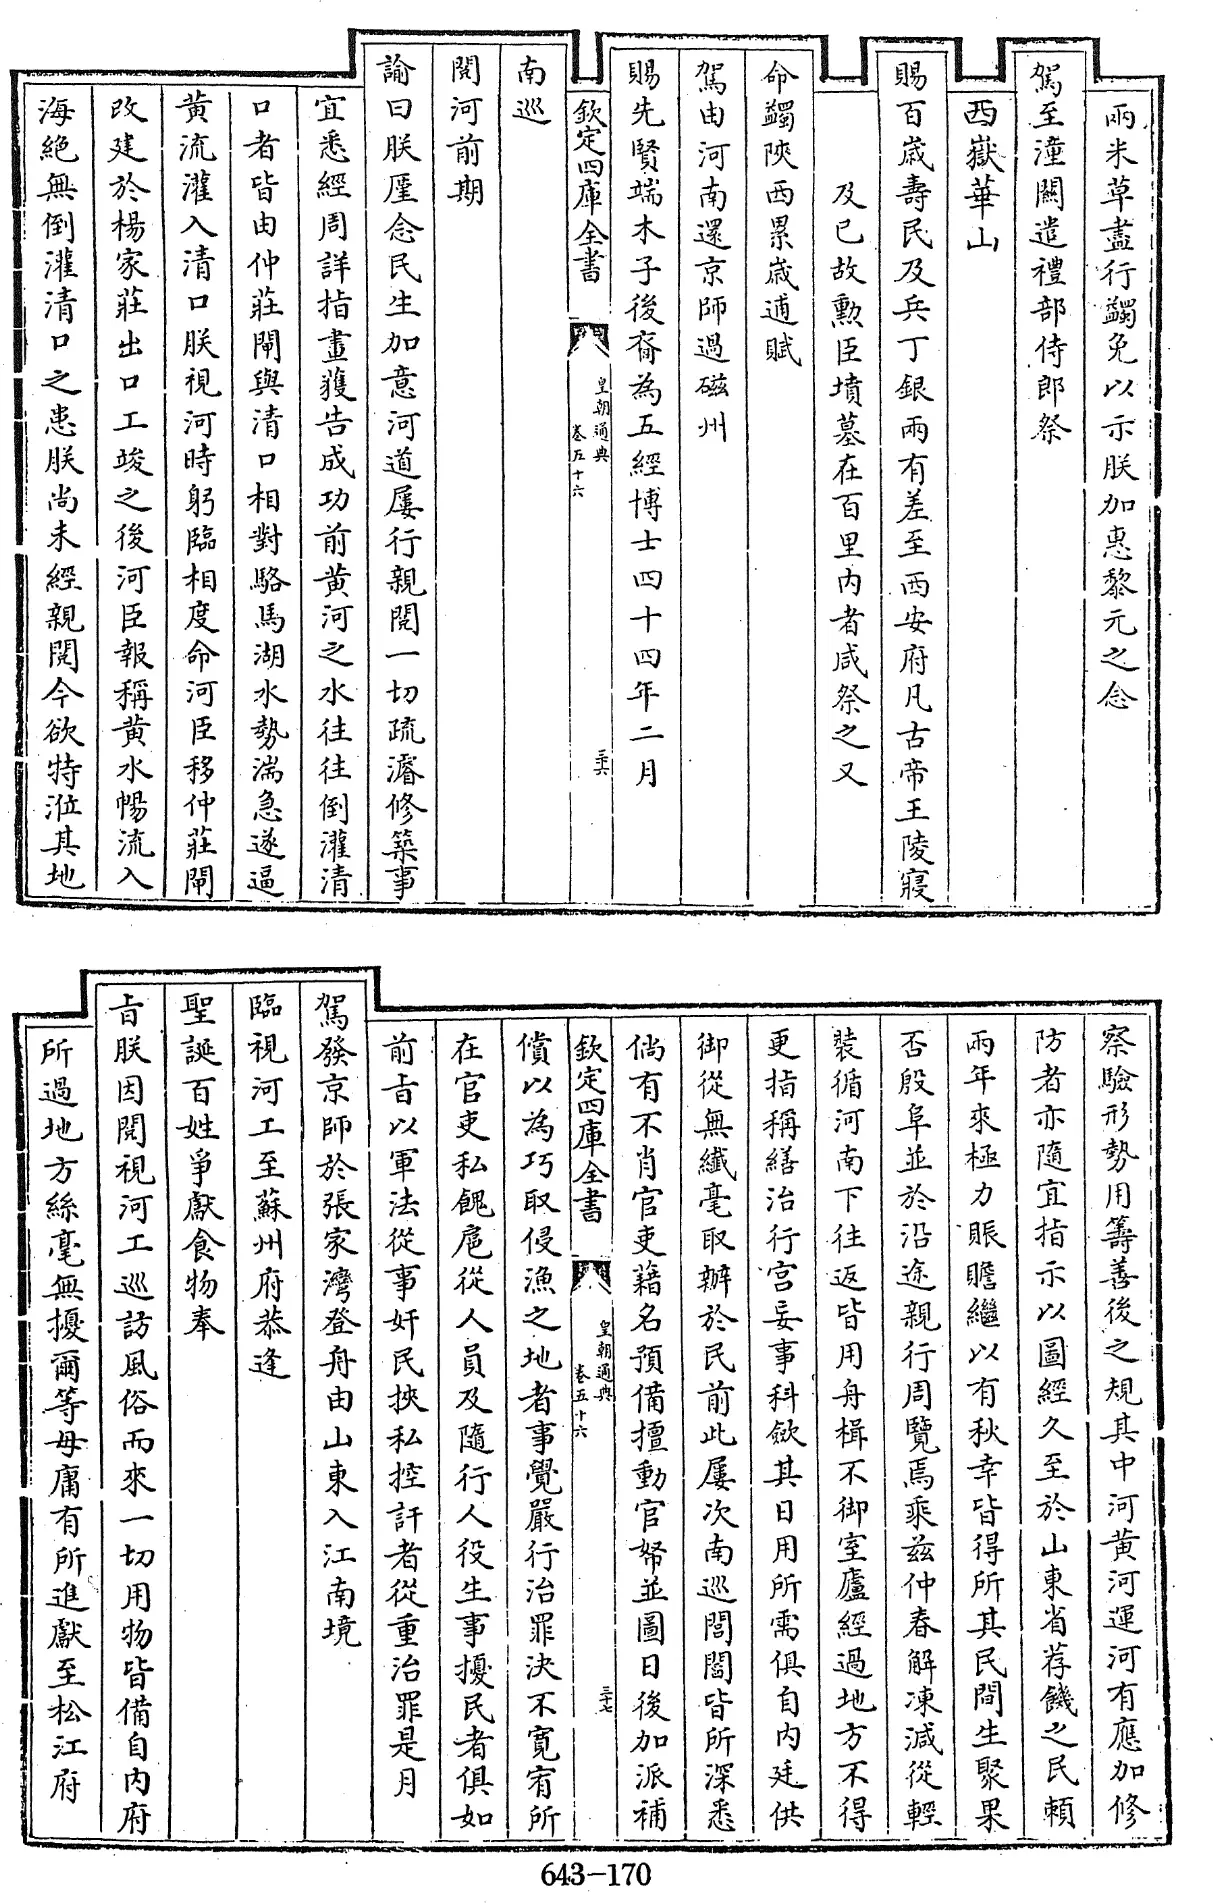 兩米草盡行蠲免以示朕加惠黎元之念
駕至潼關遣禮部侍郎祭
西嶽華山
賜百歲壽民及兵丁銀兩有差至西安府凡古帝王陵寢
及已故勲臣墳墓在百里內者咸祭之又
命蠲陜西累歲逋賦
駕由河南還京師過磁州
賜先賢端木子後裔為五經博士四十四年二月
欽定四庫全書
皇朝通典
卷五十六
三六
南巡
閱河前期
諭曰朕厪念民生加意河道屢行親閱一切疏濬修築事
宜悉經周詳指畫獲告成功前黃河之水往往倒灌清
口者皆由仲莊閘與清口相對駱馬湖水勢湍急遂逼
黃流灌入清口朕視河時躬臨相度命河臣移仲莊閘
改建於楊家莊出口工竣之後河臣報稱黃水暢流入
海絕無倒灌清口之患朕尚未經親閱今欲特涖其地
察驗形勢用籌善後之規其中河黃河運河有應加修
防者亦隨宜指示以圖經久至於山東省荐饑之民賴
兩年來極力賑贍繼以有秋幸皆得所其民間生聚果
否殷阜並於沿途親行周覽焉乘茲仲春解凍減從輕
裝循河南下往返皆用舟楫不御室廬經過地方不得
更指稱繕治行宮妄事科斂其日用所需俱自內廷供
御從無纖毫取辦於民前此屢次南巡閭閻皆所深悉
倘有不肖官吏藉名預備擅動官帑並圖日後加派補
欽定四庫全書
皇朝通典
卷五十六
三十七
償以為巧取侵漁之地者事覺嚴行治罪決不寬宥所
在官吏私餽扈從人員及隨行人役生事擾民者俱如
前旨以軍法從事奸民挾私控訐者從重治罪是月
駕發京師於張家灣登舟由山東入江南境
臨視河工至蘇州府恭逢
聖誕百姓爭獻食物奉
旨朕因閱視河工巡訪風俗而來一切用物皆備自內府
所過地方絲毫無擾爾等毋庸有所進獻至松江府
643-170